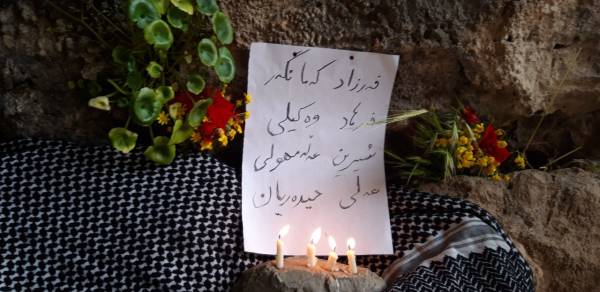 فەرزاد کەمانگەر
فەرهاد وەکیلی
شیرین عەلەمهولی
عەلی حیدەریان